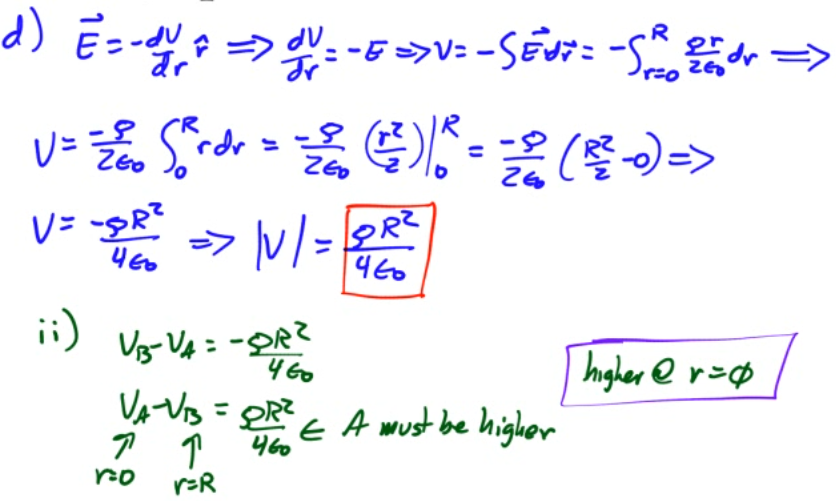 d) E⃗ = -dV/dr r̂ => dV/dr = -E => V = -∫E⃗dr⃗ = -∫_{r=0}^{R} ρr/2ε₀ dr =>
V = -ρ/2ε₀ ∫₀ᴿ r dr = -ρ/2ε₀ (r²/2)|₀ᴿ = -ρ/2ε₀ (R²/2 - 0) =>
V = -ρR²/4ε₀ => |V| = ρR²/4ε₀
ii) V_B - V_A = -ρR²/4ε₀
higher @ r = ϕ
V_A - V_B = ρR²/4ε₀ ∈ A must be higher
↑ ↑
r=0 r=R